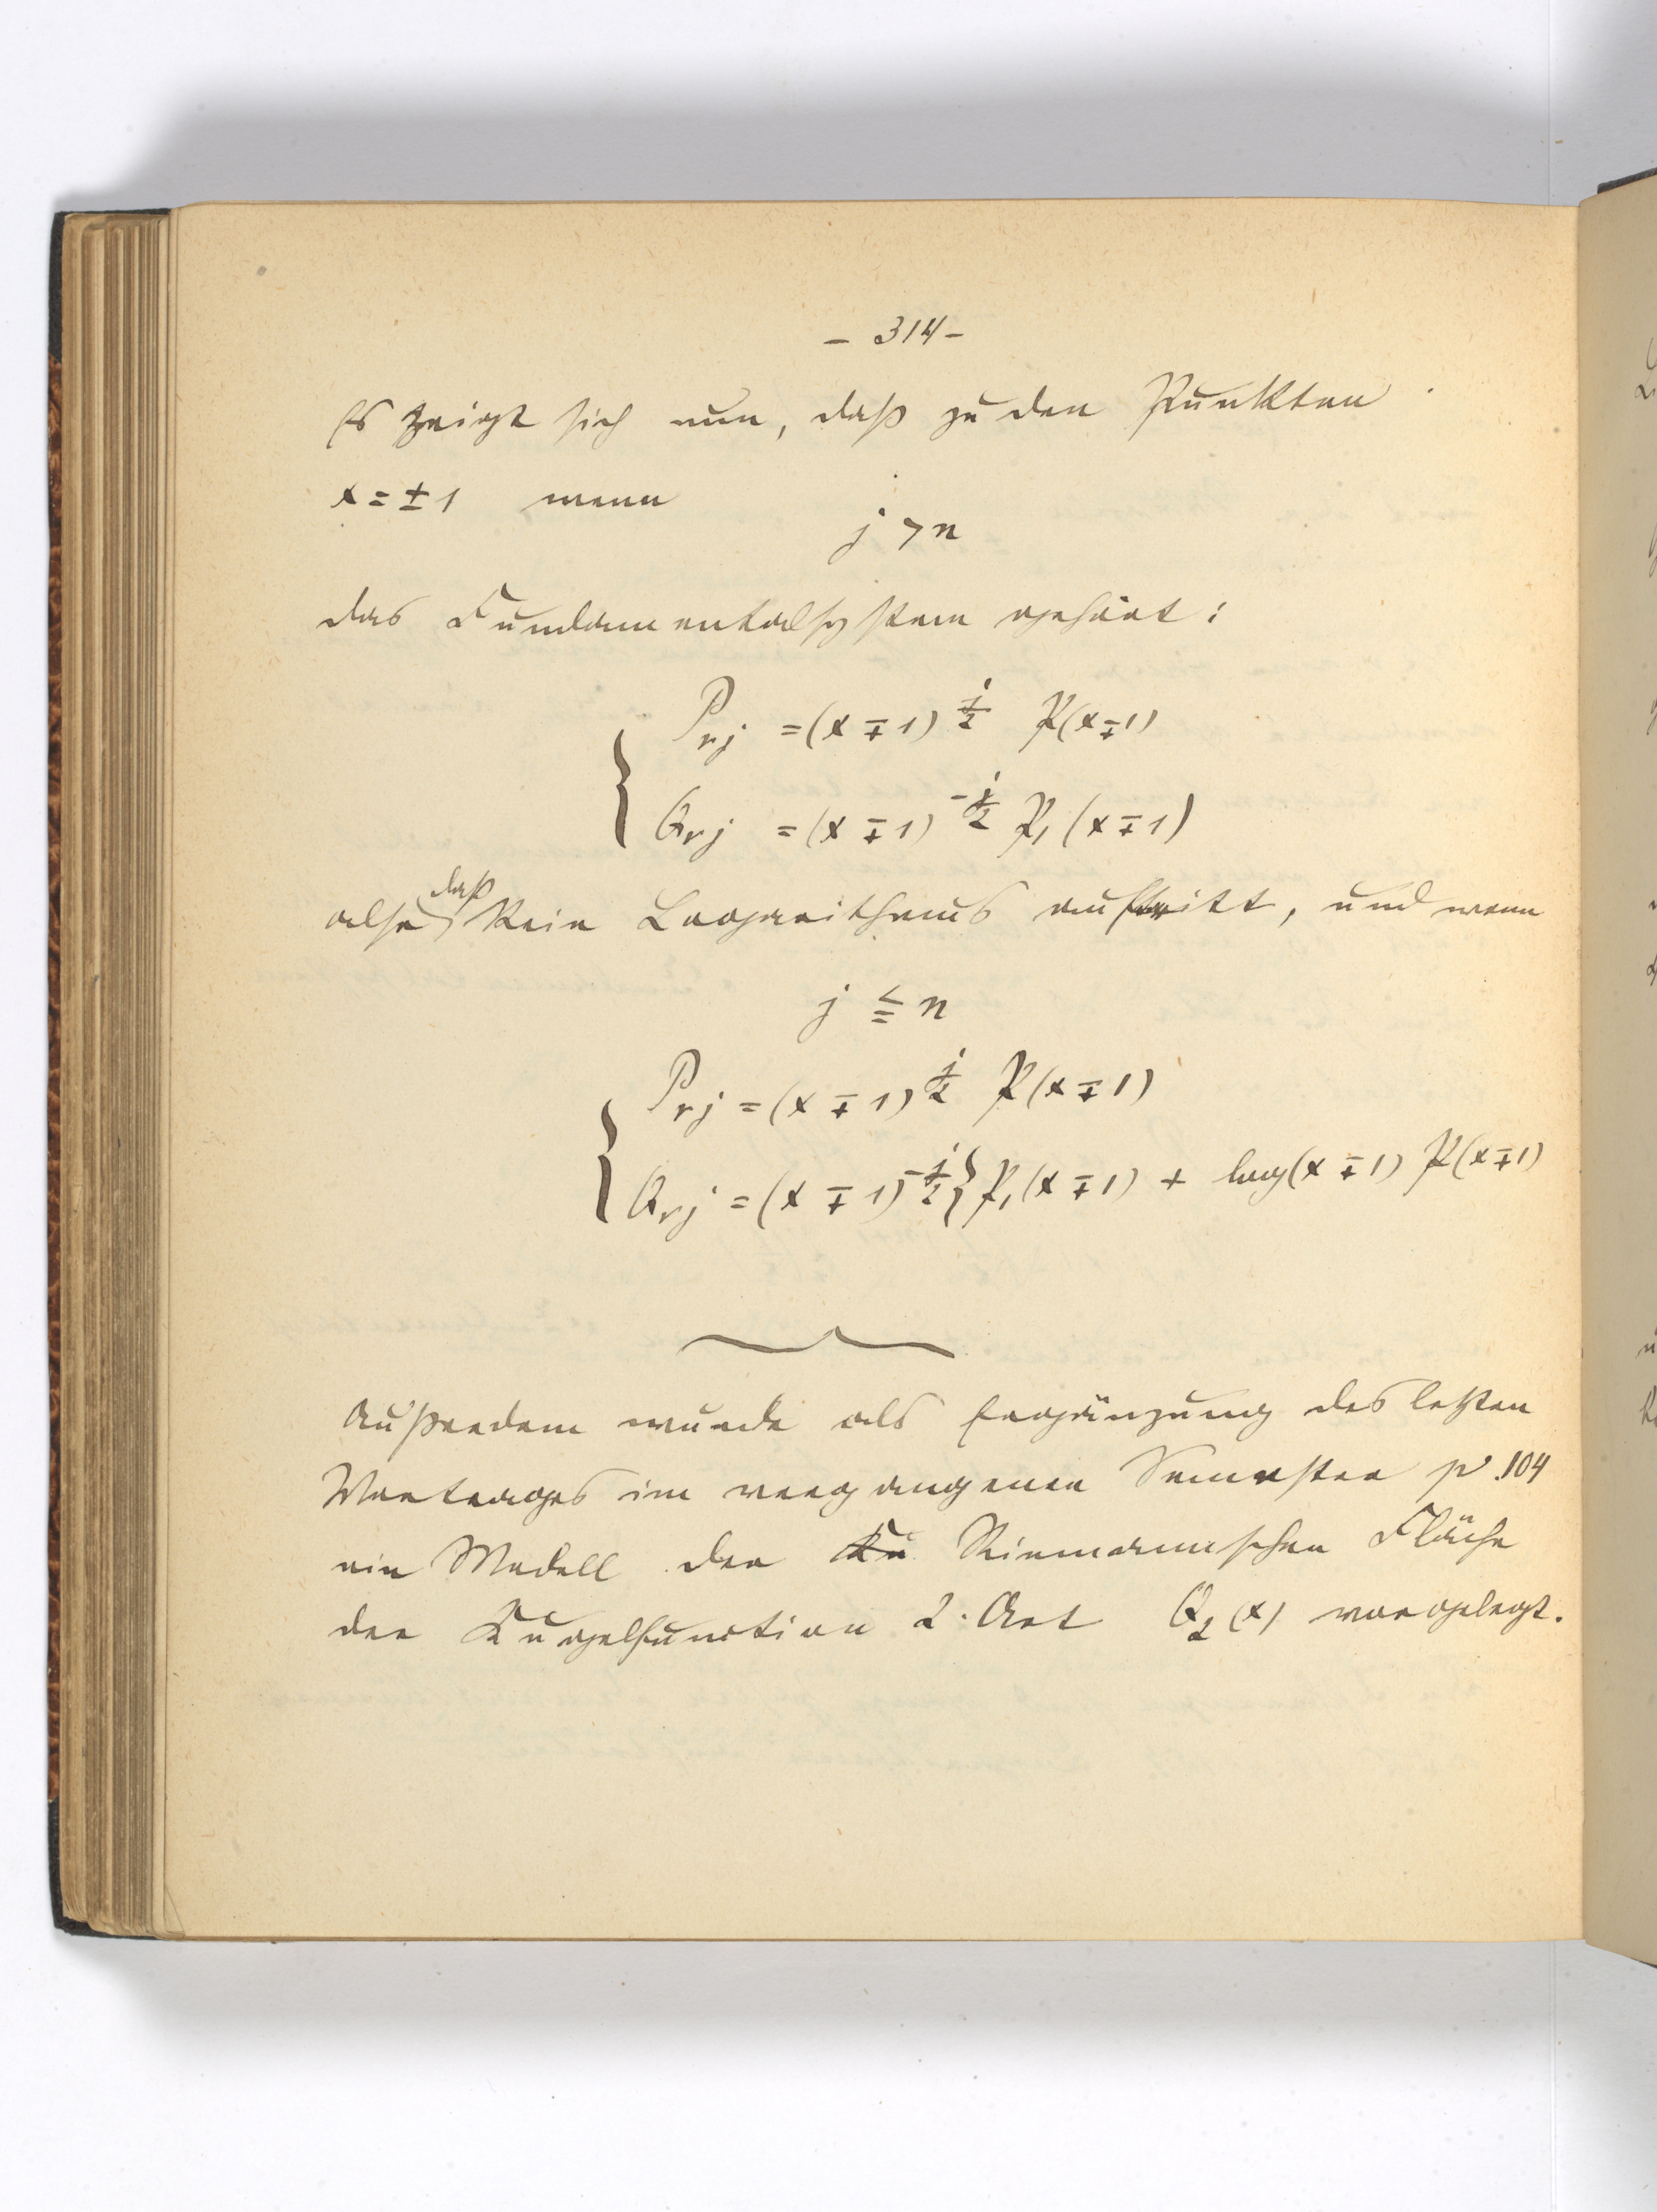 – 314 –
Es zeigt sich nun, daß zu den Punkten
x = ± 1 wenn
j > n
das Fundamentalsystem gehört:
P_{nj} = (x ∓ 1)^{j/2} P(x ∓ 1)
Q_{nj} = (x ∓ 1)^{-j/2} P_1(x ∓ 1)
daß
also kein Logarithmus auftritt, und wenn
j ≦ n
P_{nj} = (x ∓ 1)^{j/2} P(x ∓ 1)
Q_{nj} = (x ∓ 1)^{-j/2} } P_1(x ∓ 1) + log(x ∓ 1) P(x ∓ 1)
Außerdem wurde als Ergänzung des letzten
Vortrages im vergangenen Semester p. 104
ein Modell der Ku Riemannschen Fläche
der Kugelfunction 2. Art Q_2(x) vorgelegt.